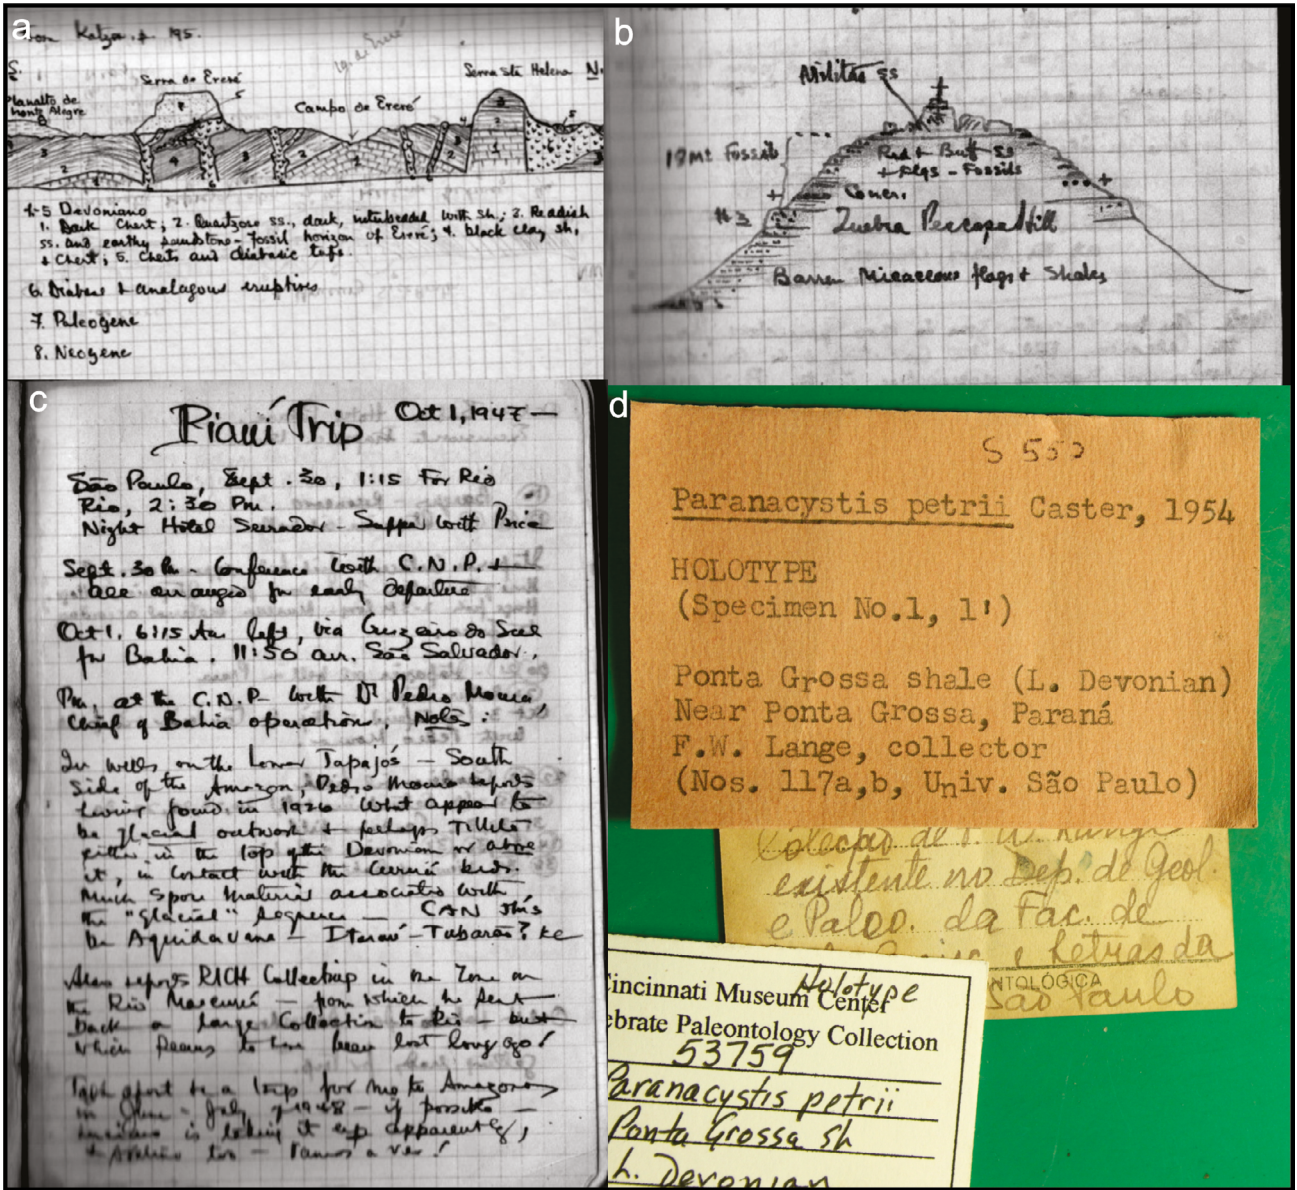 a
von Katzer, p. 195.
S.
Serra do Ereré
Serra Sta Helena N.
Planalto de
Monte Alegre
Campo de Ereré
1-5 Devoniano
1. Dark Chert; 2. Quartzose ss., dark, interbedded with sh.; 3. Reddish
ss. and earthy sandstone - fossil horizon of Ereré; 4. black clay sh.
+ Chert; 5. Cherts and diabasic tufs.
6. Diabase + analagous eruptives
7. Paleogene
8. Neogene
b
ss
Red + Buff ss
+ flgs - Fossils
Concr.
Hill
Barren Micaceous flags + Shales
c
Piauí Trip Oct 1, 1947 —
São Paulo, Sept. 30, 1:15 For Rio
Rio, 2:30 Pm.
Night Hotel Serrador - Supper with Price
Sept. 30 Pm - Conference with C.N.P. +
all arranged for early departure
Oct 1. 6:15 Am left, via Cruzeiro do Sul
for Bahia. 11:50 arr. São Salvador.
Pm. at the C.N.P. with Dr Pedro Moura
Chief of Bahia operations. Notes:
In wells on the Lower Tapajós - South
Side of the Amazon, Pedro Moura reports
having found in 1926 What appear to
be glacial outwash + perhaps Tillite
either in the top of the Devonian or above
it, in contact with the Curuá beds.
Much Spore Material associated with
the "glacial" sequence — CAN this
be Aquidauana - Itararé - Tubarão? KC
Also reports RICH Collecting in the Zone on
the Rio Maecurú — from which he sent
back a large Collection to Rio - but
which seems to have been lost long ago!
Talk about a trip for me to Amazonas
in June - July of 1948 — if possible —
is taking it up apparently,
too — Vamos a ver!
d
S 55
Paranacystis petrii Caster, 1954
HOLOTYPE
(Specimen No.1, 1')
Ponta Grossa shale (L. Devonian)
Near Ponta Grossa, Paraná
F.W. Lange, collector
(Nos. 117a,b, Univ. São Paulo)
Coleção de F. W. Lange
existente no Dep. de Geol.
e Paleo. da Fac. de
e Letras da
NTOLÓGICA
São Paulo
Holotype
incinnati Museum Center
ebrate Paleontology Collection
53759
Paranacystis petrii
Ponta Grossa sh
L. Devonian